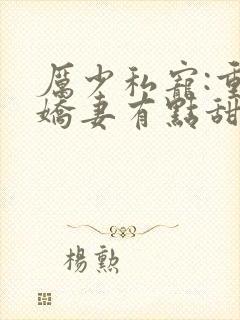 厲少私寵:重
嬌妻有點甜
楊勲